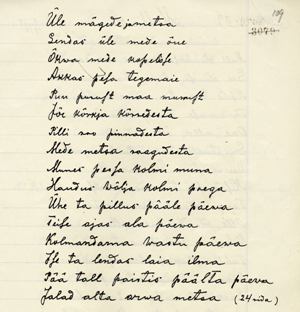 109
3079
Üle mägede ja metsa
Lendas üle mede õue
Õkva mede kopelese
Akkas pesa tegemaie
Puu purust maa murust
Jõe kõrkja kõrredesta
Pilli roo pinnadesta
Mede metsa raagudesta
Munes pessa kolmi muna
Haudus välja kolmi poega
Ühe ta pillus pääle päeva
Teise ajas ala päeva
Kolmandama vastu päeva
Ise ta lendas laia ilma
Pää tall paistis päälta päeva
Jalad alta arwa metsa (24 rida)